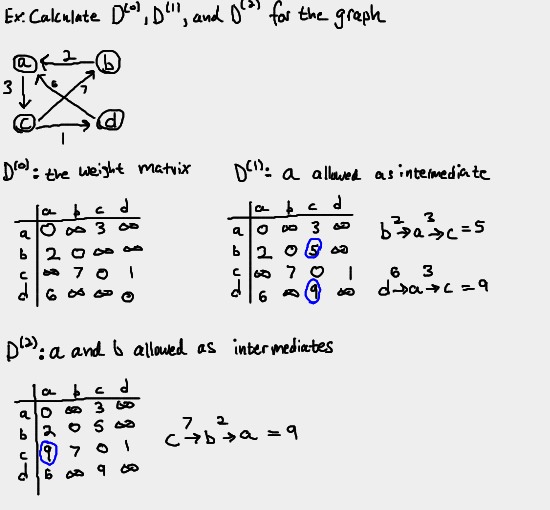 Ex: Calculate D^(0), D^(1), and D^(2) for the graph
a 2 b
3 6 7
c 1 d
D^(0): the weight matrix
a b c d
a 0 ∞ 3 ∞
b 2 0 ∞ ∞
c ∞ 7 0 1
d 6 ∞ ∞ 0
D^(1): a allowed as intermediate
a b c d
a 0 ∞ 3 ∞
b 2 0 5 ∞
c ∞ 7 0 1
d 6 ∞ 9 ∞
b →^2 a →^3 c = 5
d →^6 a →^3 c = 9
D^(2): a and b allowed as intermediates
a b c d
a 0 ∞ 3 ∞
b 2 0 5 ∞
c 9 7 0 1
d 6 ∞ 9 ∞
c →^7 b →^2 a = 9